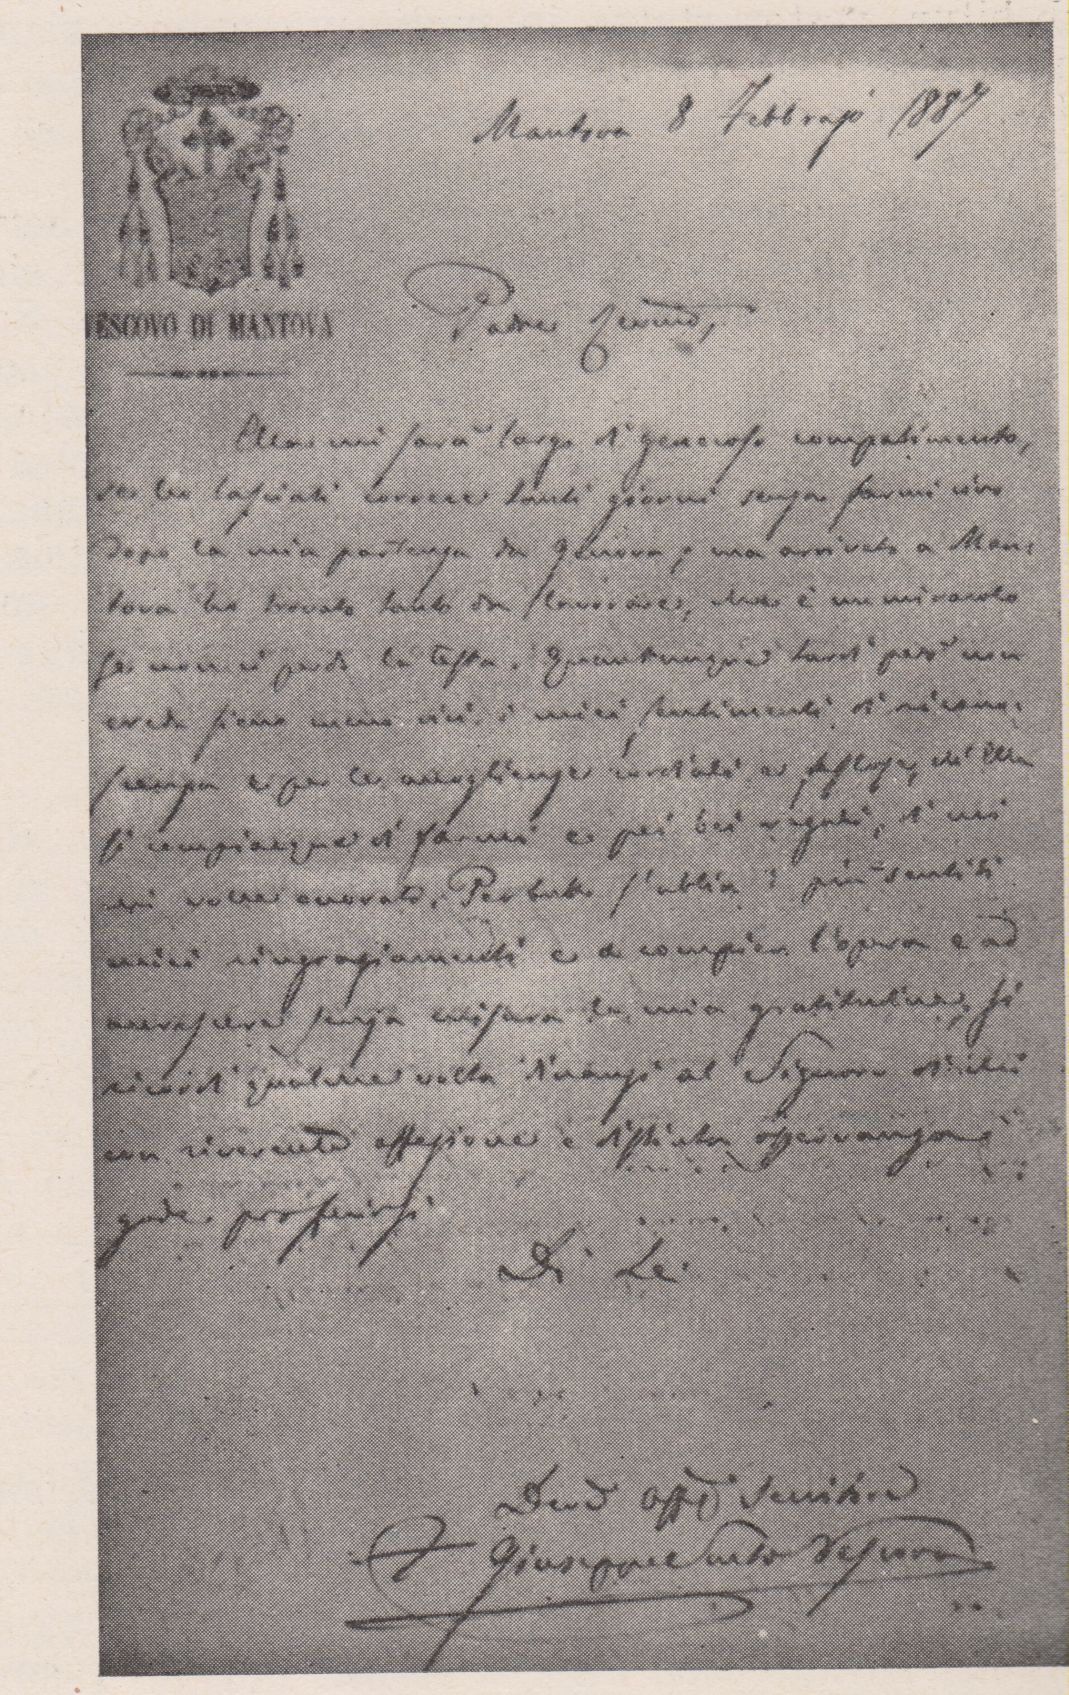 Mantova 8 Febbrajo 1887
VESCOVO DI MANTOVA
Padre
Ella mi sarà largo di generoso compatimento,
se ho lasciati correre tanti giorni senza farmi vivo
dopo la mia partenza da Genova; ma arrivato a Man-
tova ho trovato tanto da lavorare, che è un miracolo
se non ci perdo la testa. Quantunque tardi però non
creda sieno meno vivi i miei sentimenti di ricono-
scenza e per le accoglienze cordiali e festose, ch'Ella
si compiacque di farmi e pei bei regali, di cui
mi volle onorato. Per tutto s'abbia i più sentiti
miei ringraziamenti e a compier l'opera e ad
accrescere senza misura la mia gratitudine, si
ricordi qualche volta dinanzi al Signore di chi
con riverente affezione e distinta osservanza
gode professarsi
Di Le
Devo Affo Servitore
Giuseppe Sarto Vescovo